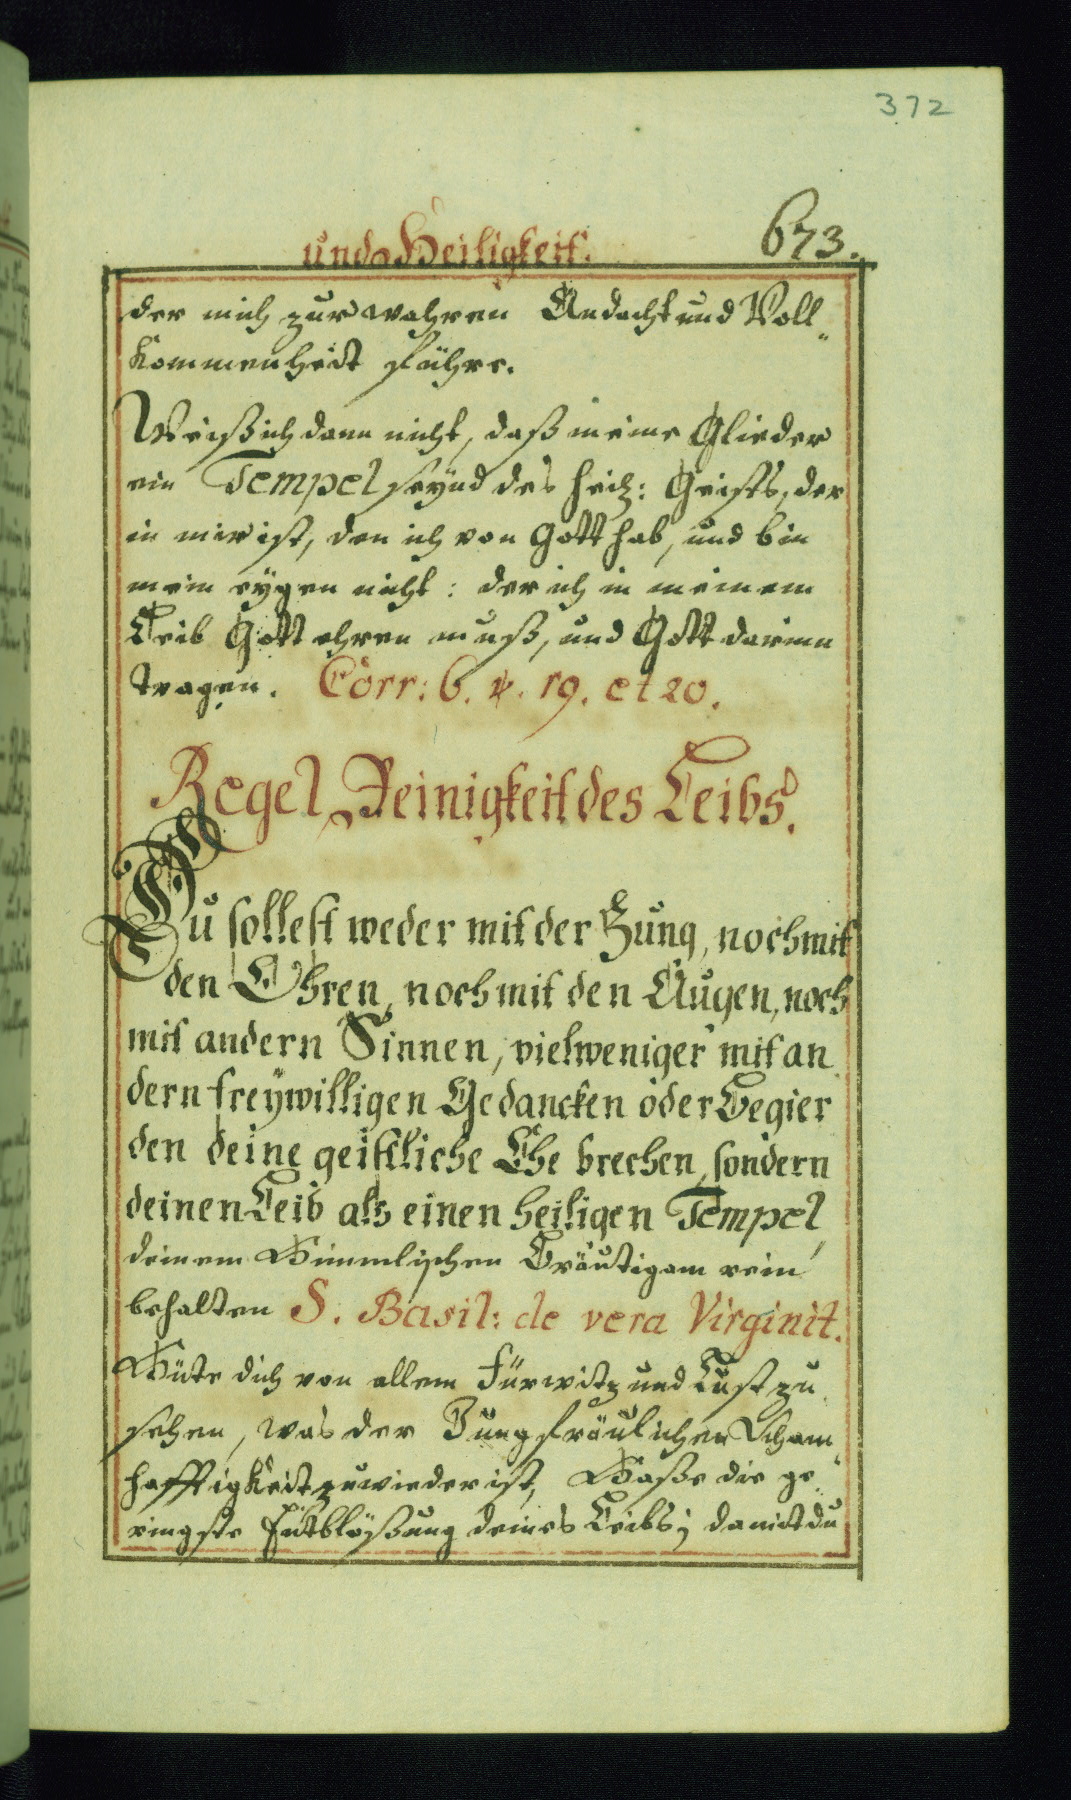 372
und Heiligkeit. 673.
der mich zur wahren Andacht und Voll„
kommenheit führe.
Weiß ich dann nicht, daß meine Glieder
ein Tempel seynd des heil: Geists, der
in mir ist, den ich von Gott hab, und bin
mein eygen nicht: der ich in meinem
Leib Gott ehren muß, und Gott darinn
tragen. Corr: 6. v. 19. et 20.
Regel Reinigkeit des Leibs.
Du sollest weder mit der Zung, noch mit
den Ohren, noch mit den Augen, noch
mit andern Sinnen, vielweniger mit an
dern freÿwilligen Gedancken oder Begier
den deine geistliche Ehe brechen, sondern
deinen Leib als einen heiligen Tempel
deinem Himmlischen Bräutigam rein
behalten S. Basil: de vera Virginit.
Hüte dich von allem fürwitz und Lust zu
sehen, was der Jungfräulichen Scham„
hafftigkeit zuwieder ist, Hasse die ge„
ringste Entblößung deines Leibs; damit du